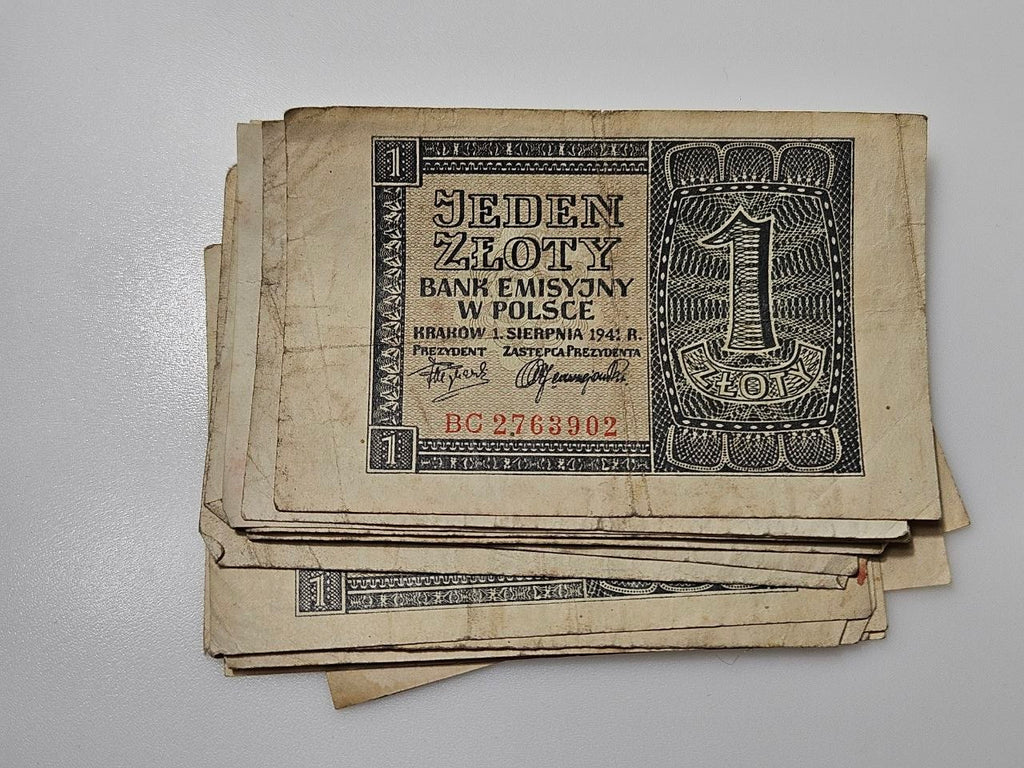 1
JEDEN
ZŁOTY
BANK EMISYJNY
W POLSCE
KRAKÓW 1. SIERPNIA 1941 R.
PREZYDENT ZASTĘPCA PREZYDENTA
BC 2763902
1
1
ZŁOTY
1